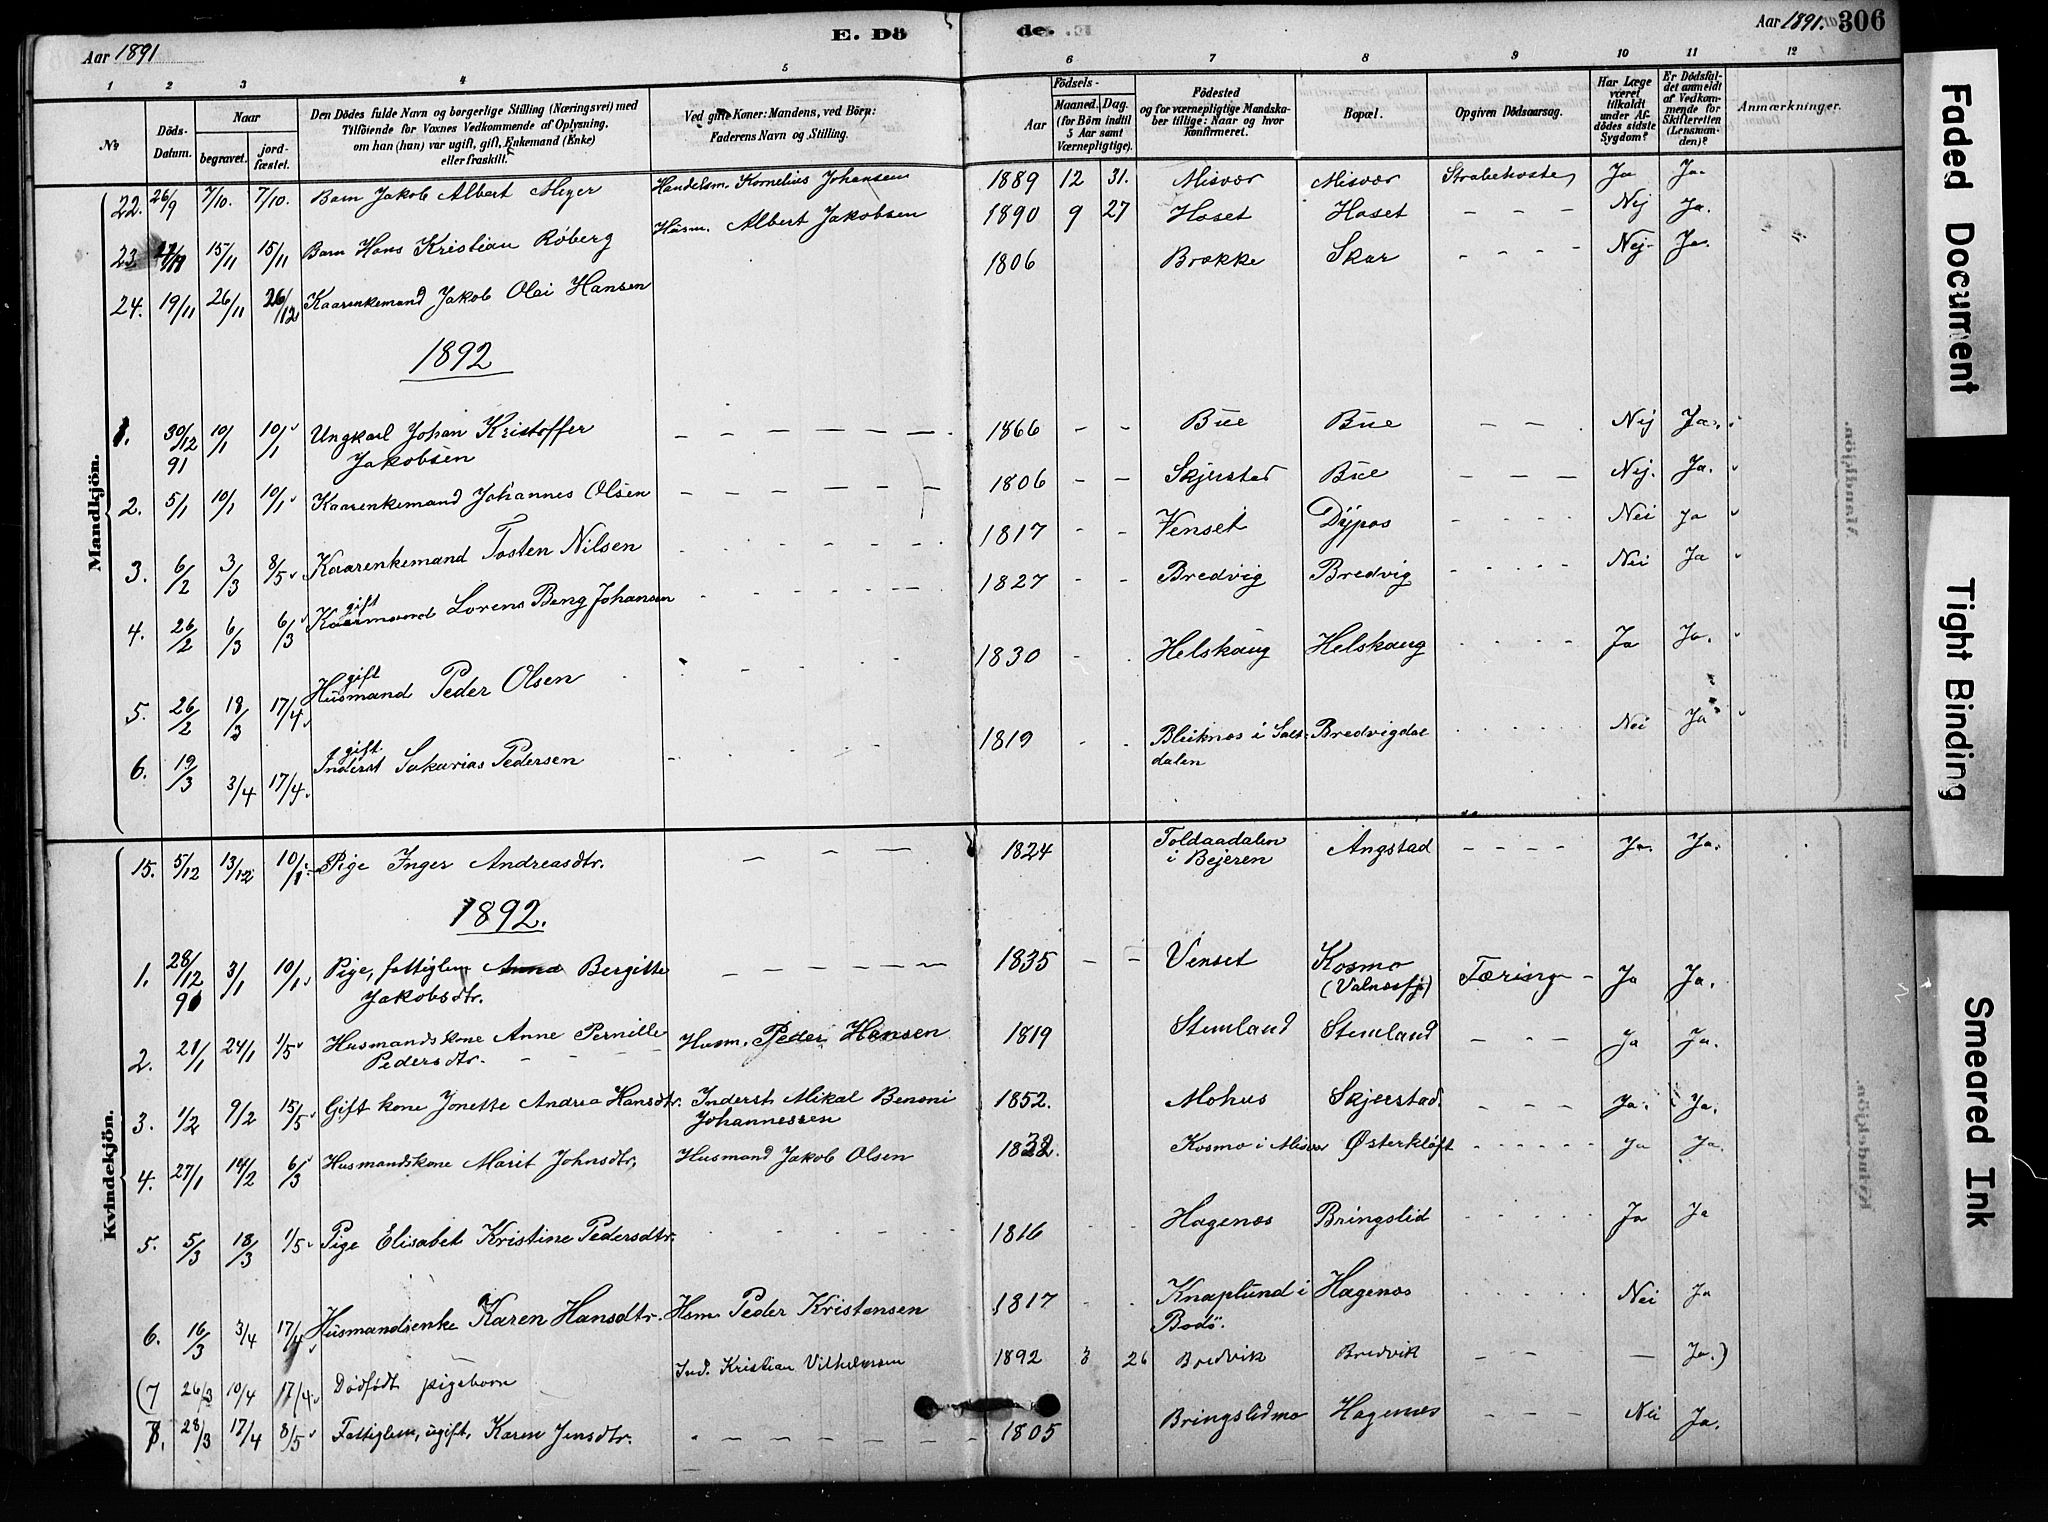 Aar 1891
E. Dö
de.
Aar 1891. 306
1 2 3 4 5 6 7 8 9 10 11 12
№
Döds-Datum.
Naar
begravet.
jord-fæstet.
Den Dödes fulde Navn og borgerlige Stilling (Næringsvei) med
Tilföiende for Voxnes Vedkommende af Oplysning,
om han (hun) var ugift, gift, Enkemand (Enke)
eller fraskilt.
Ved gifte Koner: Mandens, ved Börn:
Faderens Navn og Stilling.
Födsels-
Aar
Maaned. Dag.
(for Börn indtil
5 Aar samt
Værnepligtige).
Födested
og for værnepligtige Mandska-
ber tillige: Naar og hvor
konfirmeret.
Bopæl.
Opgiven Dödsaarsag.
Har Læge
været
tilkaldt
under Af-
dödes sidste
Sygdom?
Er Dödsfal-
det anmeldt
af Vedkom-
mende for
Skifteretten
(Lensman-
den)?
Anmærkninger.
Mandkjön.
22. 26/9 7/10. 7/10. Barn Jakob Albert Meyer Handelsm. Kornelius Johansen 1889 12 31. Misvær Misvær Strubehoste Ja Ja.
23. 15/11 15/11 Barn Hans Kristian Röberg Husm. Albert Jakobsen 1890 9 27 Hoset Hoset - - - Nej Ja.
24. 19/11 26/11 26/12 Kaarenkemand Jakob Olai Hansen 1806 Brække Skar - - - - Nej- Ja.
1892
1. 30/12 91 10/1 10/1 Ungkarl Johan Kristoffer
Jakobsen - - - - - - 1866 - - Bue Bue - - - Nej Ja.
2. 5/1 10/1 10/1 Kaarenkemand Johannes Olsen - - - - - - 1806 - - Skjerstad Bue - - - - Nej. Ja.
3. 6/2 3/3 8/5 Kaarenkemand Tosten Nilsen - - - - - - 1817 - - Venset Dypos - - - - Nei Ja
4. 26/2 6/3 6/3 gift
Kaarmand Lorens Beng Johansen - - - - - - 1827 - - Bredvig Bredvig - - - - - Nei Ja
5. 26/2 18/3 17/4 gift
Husmand Peder Olsen - - - - 1830 - - Helskaug Helskaug - - - - Ja Ja.
6. 19/3 3/4 17/4 gift
Inderst Sakarias Pedersen - - - - 1819 - - Bleiknes i Salt-
dalen Bredvigdal - - - - Nei Ja
Kvindekjön.
15. 5/12 13/12 10/1 Pige Inger Andreasdtr. - - - 1824 Toldaadalen
i Bejeren Angstad - - - - Ja. Ja.
1892.
1. 28/12 91 3/1 10/1 Pige, fattiglem Anna Bergitte
Jakobsdtr. - - - - - - 1835 - - Venset Kosmo
(Valnesfj) Tæring - Ja Ja.
2. 21/1 24/1 1/5 Husmandskone Anne Pernille
Pedersdtr. - - - - Husm. Peder Hansen 1819 Stemland Stemland - - - Ja Ja.
3. 1/2 9/2 15/5 Gift kone Jonette Andrea Hansdtr. Inderst Mikal Benoni
Johannessen 1852. Mohus Skjerstad. - - - - Ja. Ja.
4. 27/1 14/2 6/3 Husmandskone Marit Johnsdtr, Husmand Jakob Olsen 1832. Kosmo i Misvær Østerkløft - - - - - - Ja Ja.
5. 5/3 18/3 1/5 Pige Elisabet Kristine Pedersdtr. - - - - - 1816 - - Hagenes Bringslid - - - - - Ja Ja
6. 16/3 3/4 17/4 Husmandsenke Karen Hansdtr. Hsm Peder Kristensen 1817 - - Knaplund i
Bodö. Hagenes - - - - - Nei Ja
(7 26/3 10/4 17/4 Dödfödt pigebarn Ind. Kristian Vilhelmsen 1892 3 26 Bredvik Bredvik - - - - Ja.)
8. 28/3 17/4 8/5 Fattiglem, ugift, Karen Jensdtr. - - - - - - - 1805 Bringslidmo Hagenes - - - - Nei Ja.
Faded Document
Tight Binding
Smeared Ink